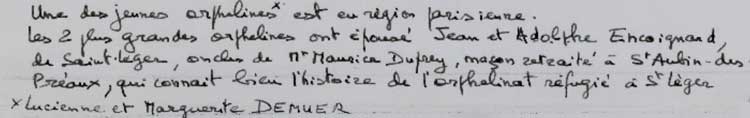 Une des jeunes orphelines x est en région parisienne.
Les 2 plus grandes orphelines ont épousé Jean et Adolphe Encoignard,
de Saint-Léger, oncles de Mr Maurice Duprey, maçon retraité à St Aubin-des-
Préaux, qui connait bien l'histoire de l'orphelinat réfugié à St Léger
x Lucienne et Marguerite DEMUER